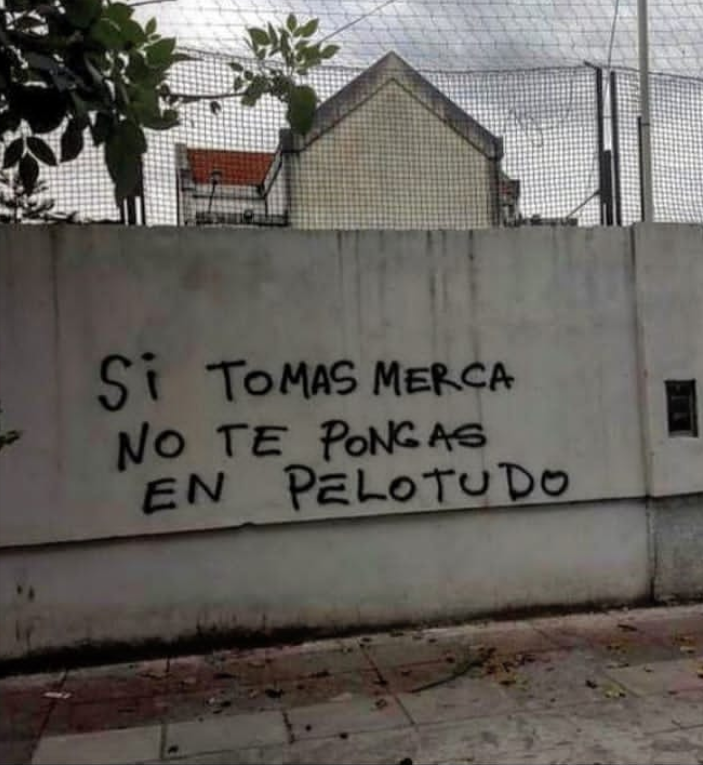 Si TOMAS MERCA
NO TE PONGAS
EN PELOTUDO